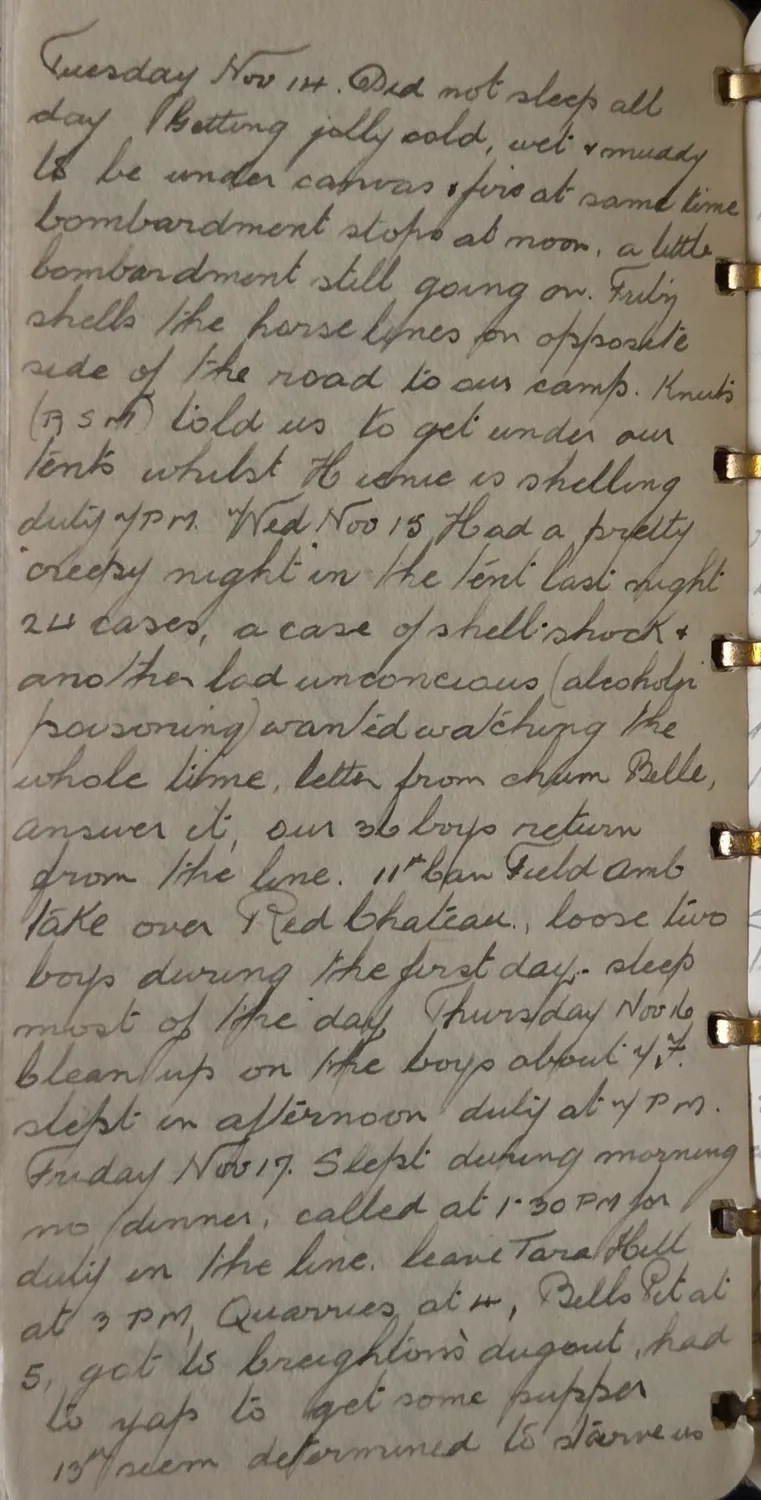 Tuesday Nov 14. Did not sleep all
day Getting jolly cold, wet & muddy
to be under canvas & fire at same time
bombardment stops at noon, a little
bombardment still going on. Fritz
shells the horse lines on opposite
side of the road to our camp.
(RSM) told us to get under our
tents whilst Hunie is shelling
duty 7 PM. Wed Nov 15 Had a pretty
creepy night in the tent last night
24 cases, a case of shell-shock &
another lad unconcious (alcoholic
poisoning) wanted watching the
whole time, letter from chum Belle,
answer it, our 36 boys return
from the line. 11th Can Field Amb
take over Red Chateau., loose two
boys during the first day. sleep
most of the day Thursday Nov 16
Clean up on the boys about
slept in afternoon duty at 7 PM.
Friday Nov 17. Slept during morning
no dinner, called at 1.30 PM for
duty in the line. leave Tara Hill
at 3 PM, Quarries at 4, Bells Pit at
5, got to Creighton's dugout, had
to yap to get some supper
13th seem determined to starve us